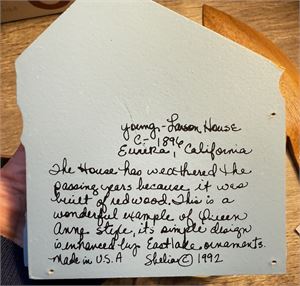 Young-Larson House
C- 1896
Eureka, California
The House has weathered the
passing years because it was
built of redwood. This is a
wonderful example of Queen
Anne Style, it's simple design
is enhanced by Eastlake ornaments.
Made in U.S.A Shelia © 1992